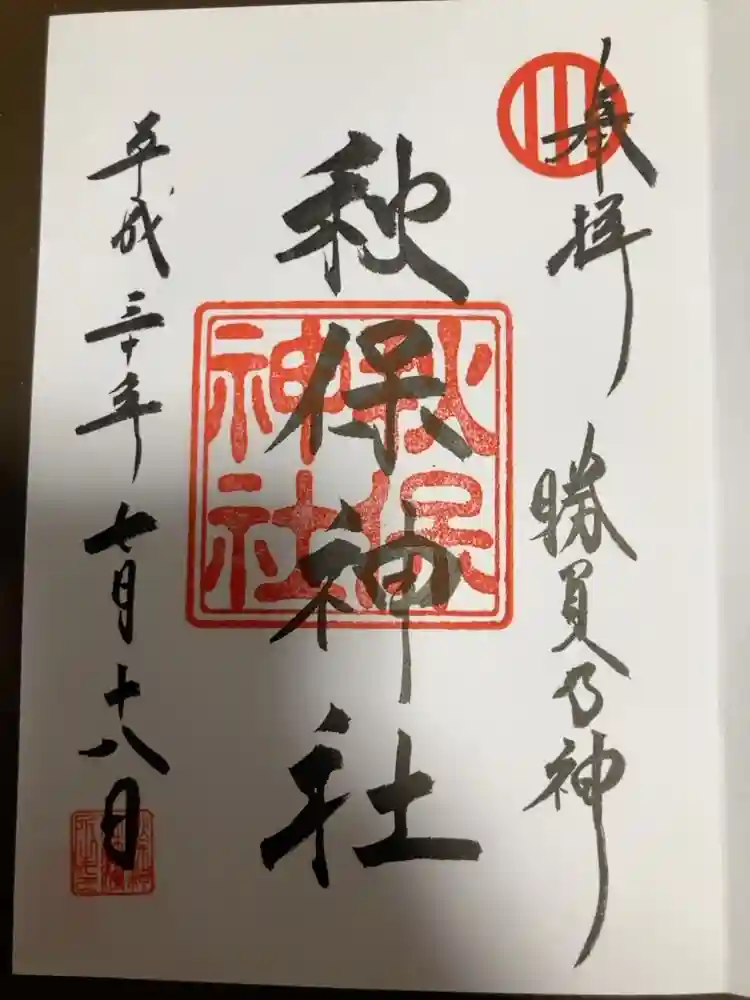 奉拝
勝負乃神
秋保神社
秋保
神社
平成三十年七月十八日